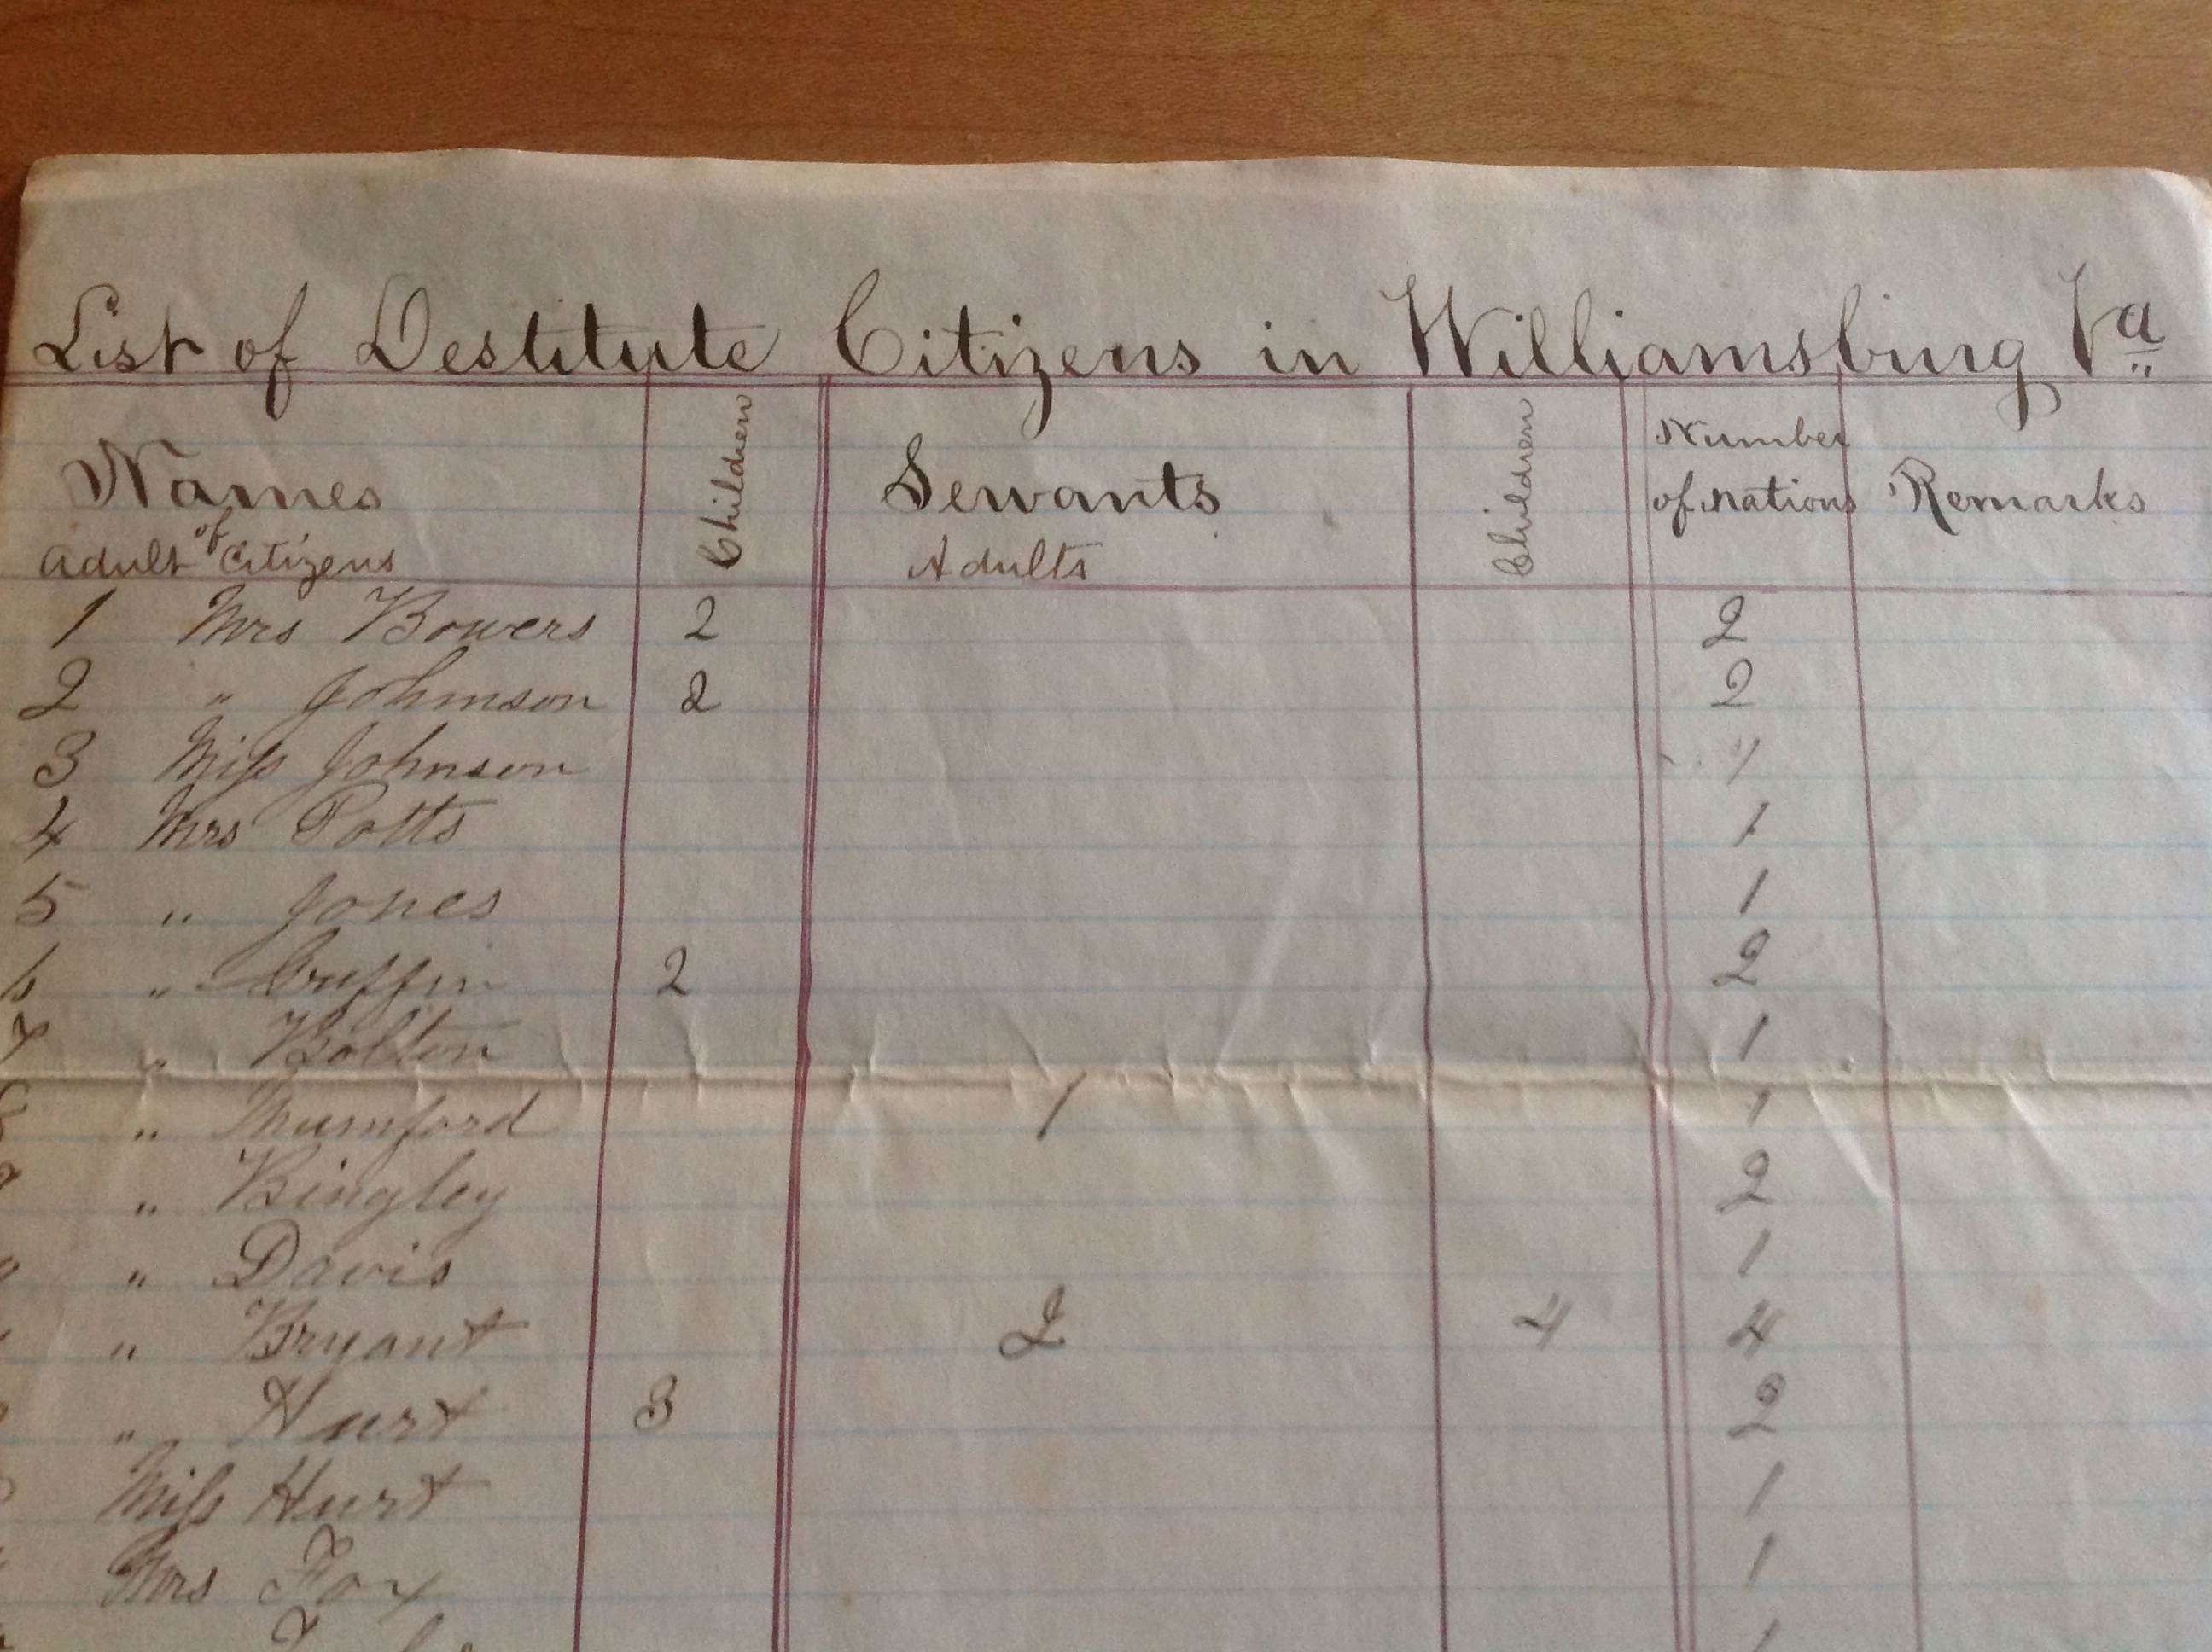 List of Destitute Citizens in Williamsburg Va
Names of Adult Citizens Children Servants Adults Children Number of Rations Remarks
1 Mrs Bowers 2 2
2 " Johnson 2 2
3 Miss Johnson 1
4 Mrs Potts 1
5 " Jones 1
6 " Griffin 2 2
7 " Bolton 1
8 " Mumford 1 1
" Bingley 2
" Davis 1
" Bryant 2 4 4
" Hurt 3 2
Miss Hurt 1
Mrs Fox 1